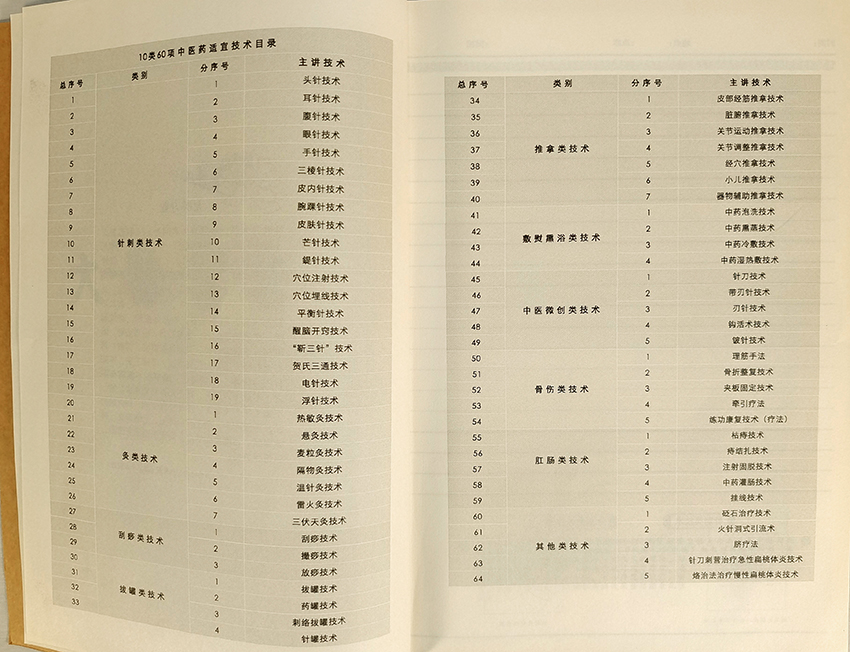 10类60项中医药适宜技术目录
总序号 类别 分序号 主讲技术
1 1 头针技术
2 2 耳针技术
3 3 腹针技术
4 4 眼针技术
5 5 手针技术
6 6 三棱针技术
7 7 皮内针技术
8 8 腕踝针技术
9 9 皮肤针技术
10 针刺类技术 10 芒针技术
11 11 鍉针技术
12 12 穴位注射技术
13 13 穴位埋线技术
14 14 平衡针技术
15 15 醒脑开窍技术
16 16 “靳三针”技术
17 17 贺氏三通技术
18 18 电针技术
19 19 浮针技术
20 1 热敏灸技术
21 2 悬灸技术
22 3 麦粒灸技术
23 灸类技术 4 隔物灸技术
24 5 温针灸技术
25 6 雷火灸技术
26 7 三伏天灸技术
27 1 刮痧技术
28 刮痧类技术 2 撮痧技术
29 3 放痧技术
30 1 拔罐技术
31 2 药罐技术
32 拔罐类技术 3 刺络拔罐技术
33 4 针罐技术
总序号 类别 分序号 主讲技术
34 1 皮部经筋推拿技术
35 2 脏腑推拿技术
36 3 关节运动推拿技术
37 推拿类技术 4 关节调整推拿技术
38 5 经穴推拿技术
39 6 小儿推拿技术
40 7 器物辅助推拿技术
41 1 中药泡洗技术
42 2 中药熏蒸技术
敷熨熏浴类技术
43 3 中药冷敷技术
44 4 中药湿热敷技术
45 1 针刀技术
46 2 带刃针技术
47 中医微创类技术 3 刃针技术
48 4 钩活术技术
49 5 铍针技术
50 1 理筋手法
51 2 骨折整复技术
52 骨伤类技术 3 夹板固定技术
53 4 牵引疗法
54 5 练功康复技术（疗法）
55 1 枯痔技术
56 2 痔结扎技术
57 肛肠类技术 3 注射固脱技术
58 4 中药灌肠技术
59 5 挂线技术
60 1 砭石治疗技术
61 2 火针洞式引流术
62 其他类技术 3 脐疗法
63 4 针刀刺营治疗急性扁桃体炎技术
64 5 烙治法治疗慢性扁桃体炎技术